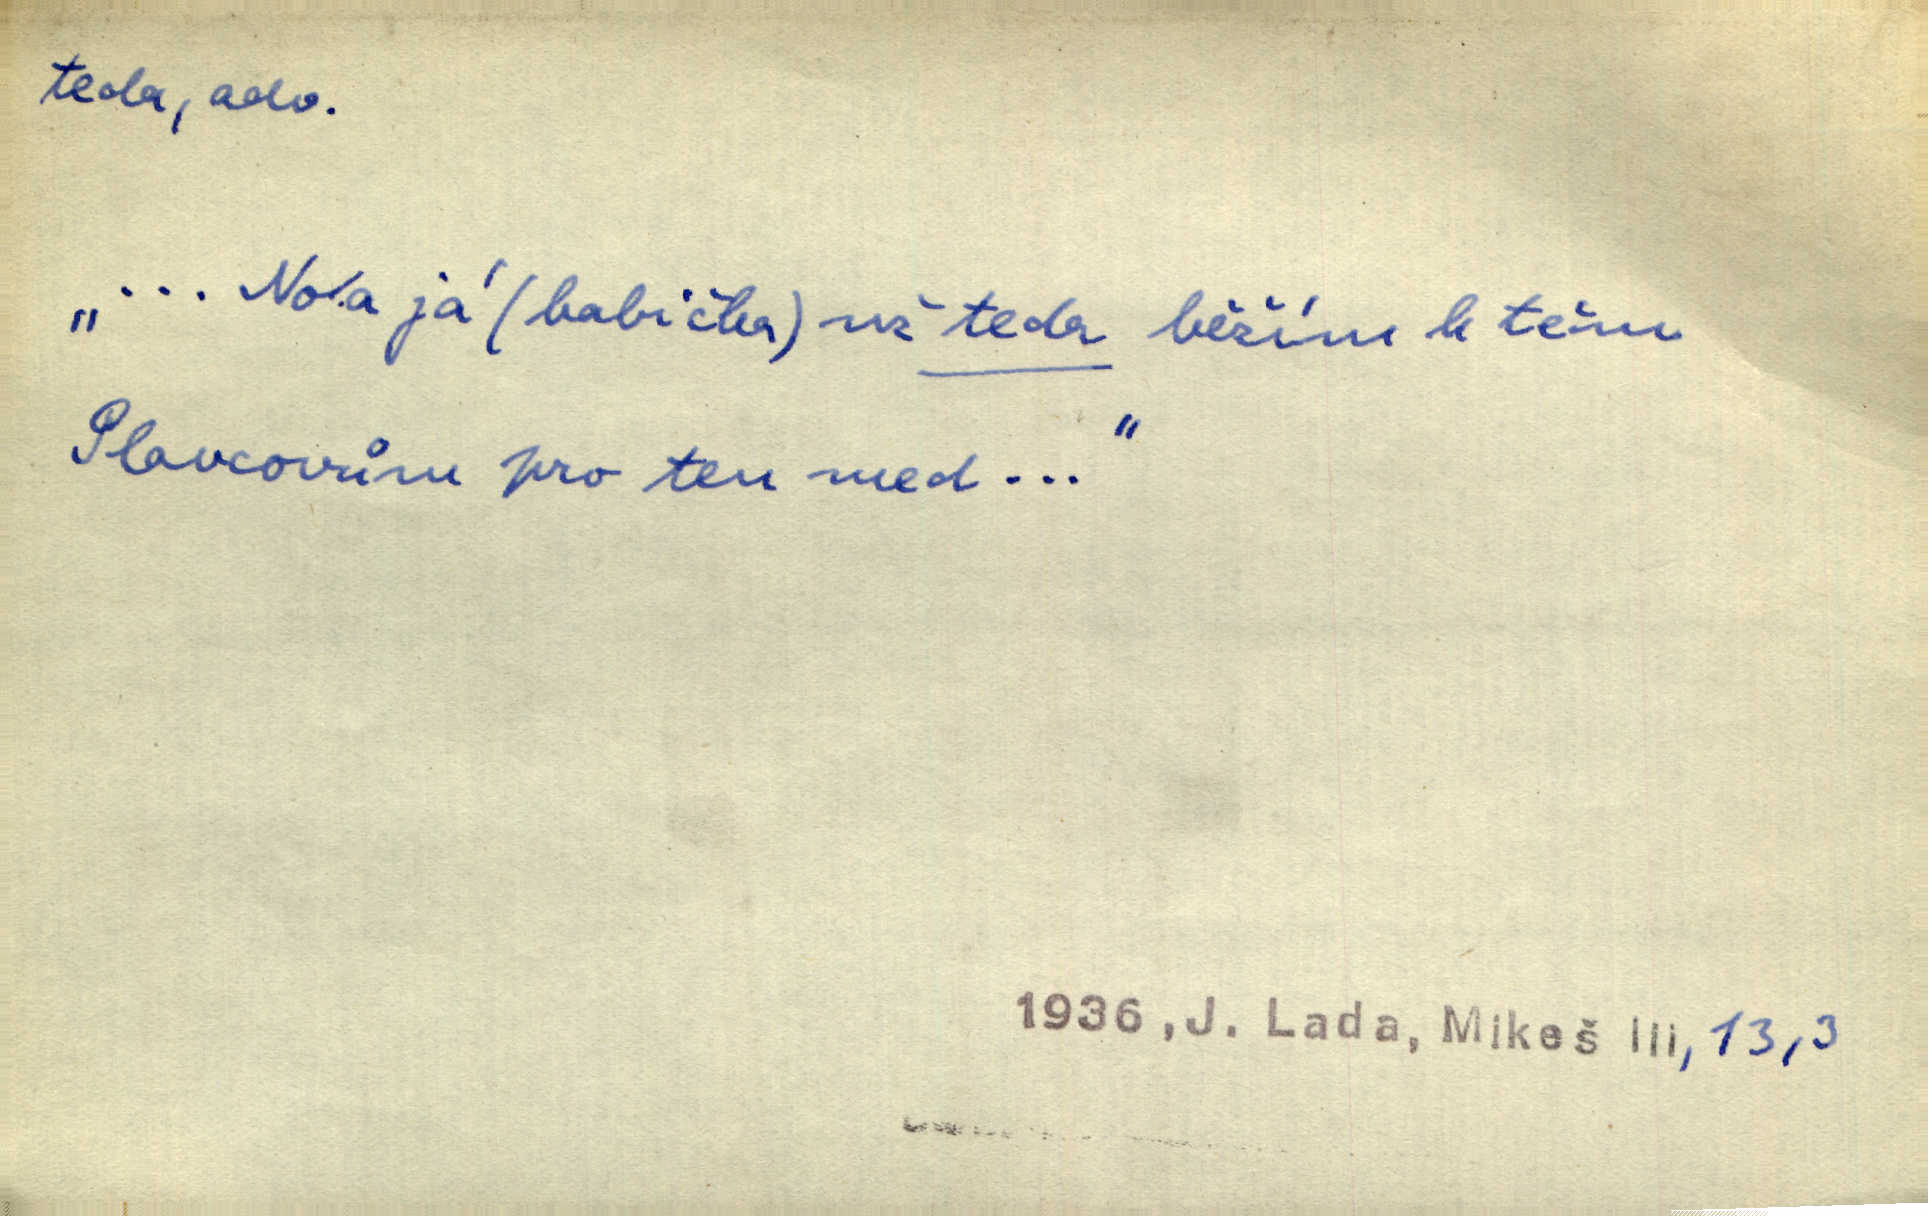 teda, adv.
„... No a já (babička) už teda běžím k těm
Slavcovům pro ten med ..."
1936, J. Lada, Mikeš III, 13,3